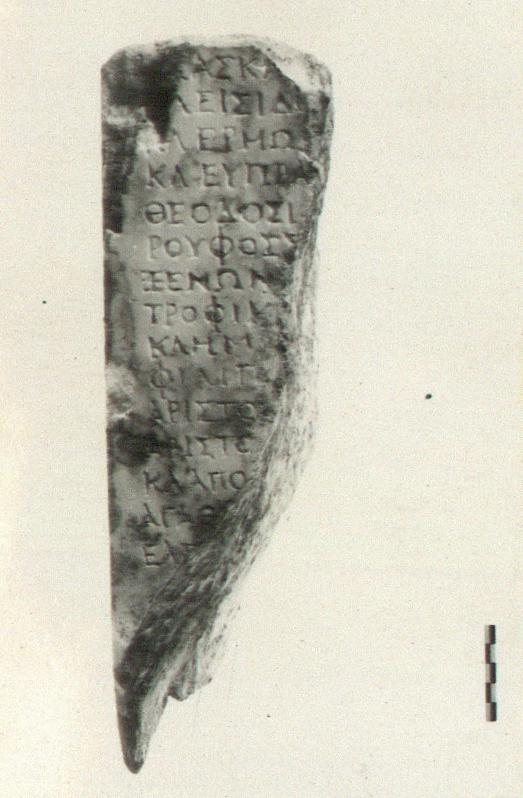 ΑΣΚΛ
ΚΛ ΕΙΣΙΔ
ΚΛ ΕΡΜΩ
ΚΛ ΕΥΠΡΑ
ΘΕΟΔΟΣΙ
ΡΟΥΦΟΣ Σ
ΞΕΝΩΝ
ΤΡΟΦΙΜ
ΚΛΗΜ
ΦΙΛΙΠ
ΑΡΙΣΤΟ
ΑΡΙΣΤΟ
ΚΛ ΑΠΟ
ΑΓΑΘ
ΕΛΠ